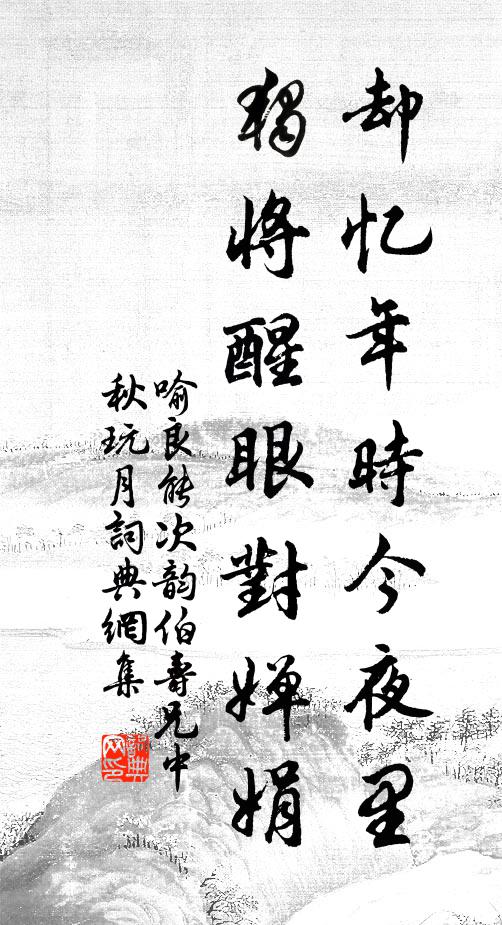 却忆年時今夜里
獨將醒眼對嬋娟
喻良能次韵伯壽兄中
秋玩月詞典網集
詞典
网印